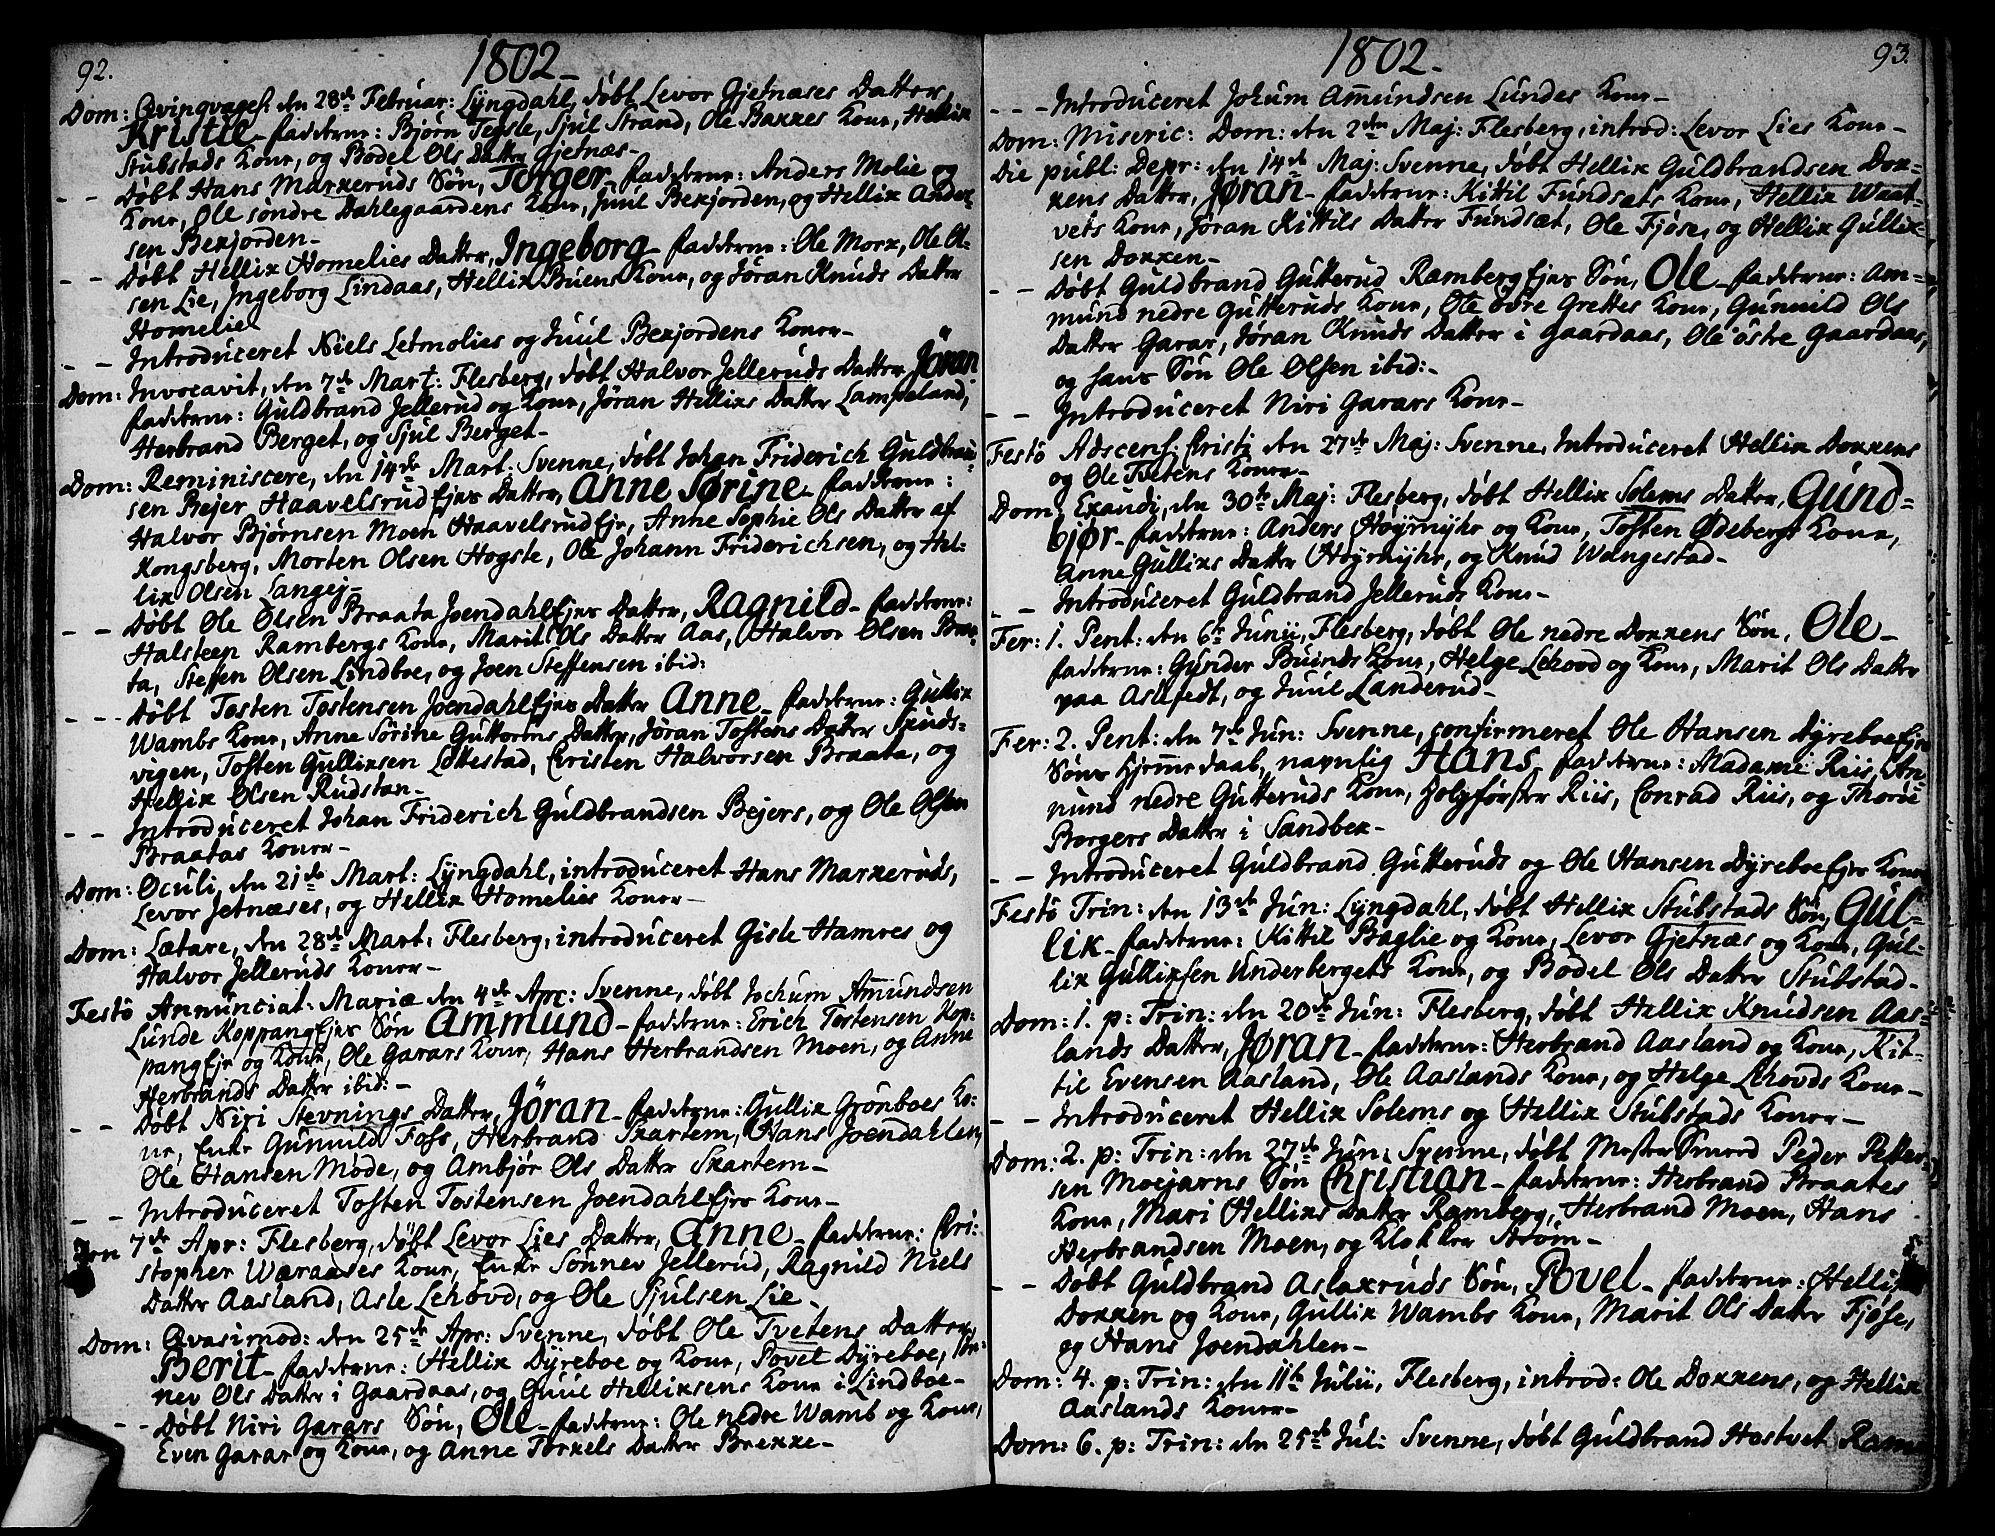 92.
1802.
Dom: Qvinqvages: den 28de Februar: Lyngdahl, døbt Levor Gjetnæses Datter
Kristie - fadderne: Bjørn Tegsle, Sjul Strand, Ole Bakkes Kone, Hellik
Stubstads Kone, og Bodel Ols Datter Gjetnæs-
- - Døbt Hans Markeruds Søn, Torger - fadderne: Anders Molie og
Kone, Ole søndre Dahlegaardens Kone, Juul Bekjorden, og Hellik Ander-
sen Bekjorden-
- - Døbt Hellik Homelies Datter, Ingeborg - fadderne: Ole Mork, Ole Ol-
sen Lie, Ingeborg Lindaas, Hellik Buens Kone, og Jøran Knuds Datter
Homelie
- - Introduceret Niels Letmolies og Juul Bekjordens Koner-
Dom: Invocavit, den 7de Mart: Flesberg, døbt Halvor Jelleruds Datter Jöran
fadderne: Guldbrand Jellerud og Kone, Jöran Helliks Datter Lampeland,
Herbrand Berget, og Sjul Berget-
Dom: Reminiscere, den 14de Mart: Svenne, døbt Johan Friderich Guldbran-
sen Bejer Haavelsrud Ejes Datter, Anne Sørine - fadderne:
Halvor Bjørnsen Moen Haavelsrud Eje, Anne Sophie Ols Datter af
Kongsberg, Morten Olsen Hogste, Ole Johann Friderichsen, og Hel-
lik Olsen Langej-
- - Døbt Ole Olsen Braata Joendahl Ejes Datter, Ragnild - fadderne:
Halsteen Rambergs Kone, Marit Ols Datter Aas, Halvor Olsen Braa-
ta, Steffen Olsen Lindboe, og Joen Steffensen ibid:
- - - Døbt Tosten Tostensen Joendahl Ejes Datter Anne - fadderne: Gullik
Wambs Kone, Anne Sörine Guttorms Datter, Jøran Tostens Datter Skuds-
vigen, Tosten Gulliksen Løkkestad, Cristen Halvorsen Braata, og
Hellik Olsen Rudstan-
- - Introduceret Johan Friderich Guldbrandsen Bejers, og Ole Olsen
Braatas Koner-
Dom: Oculi, den 21de Mart: Lyngdahl, introduceret Hans Markeruds,
Levor Jetnæses, og Hellik Homelies Koner-
Dom: Lætare, den 28de Mart: Flesberg, introduceret Gisle Hamres og
Halvor Jelleruds Koner-
Festö Annunciat: Mariæ den 4de Apr: Svenne, døbt Jochum Amundsen
Lunde Koppang Ejes Søn Ammund - fadderne: Erich Tostensen Kop-
pang Eje og Kone, Ole Garars Kone, Hans Herbrandsen Moen, og Anne
Herbrands Datter ibid:-
- - Døbt Niri Stevnings Datter, Jöran - fadderne: Gullik Grönboes Ko-
ne, Enke Gunnild Foss, Herbrand Skartem, Hans Joendahlen,
Ole Hansen Mode, og Ambjør Ols Datter Skartem-
- - Introduceret Tosten Tostensen Joendahl Ejes Kone-
Den 7de Apr: Flesberg, døbt Levor Lies Datter, Anne - fadderne: Cri-
stopher Waraases Kone, Enke Sönnev Jellerud, Ragnild Niels
Datter Aasland, Asle Lehovd, og Ole Sjulsen Lie-
Dom: Qvasimod: den 25de Apr: Svenne, døbt Ole Tvetens Datter,
Berit - fadderne: Hellik Dyreboe og Kone, Povel Dyreboe,
nev Ols Datter i Gaardaas, og Guul Helliksens Kone i Lindboe-
- - Døbt Niri Garars Søn, Ole - fadderne: Ole nedre Wamb og Kone,
Even Garar og Kone, og Anne Torkels Datter Brekke-
93.
1802.
- - - Introduceret Johum Amundsen Lundes Kone-
Dom: Miseric: Dom: den 2den Maj: Flesberg, introd: Levor Lies Kone-
Die publ: Depr: den 14de Maj: Svenne, døbt Hellik Guldbrandsen Dok-
kens Datter, Jøran - fadderne: Kittil Fundsæts Kone, Hellik Waat-
vets Kone, Jöran Kittils Datter Fundsæt, Ole Fjøse, og Hellik Gullik-
sen Dokken-
- - Døbt Guldbrand Gutterud Ramberg Ejes Søn, Ole - fadderne: Am-
mund nedre Gutteruds Kone, Ole övre Grettes Kone, Gunnild Ols
Datter Garar, Jøran Knuds Datter i Gaardaas, Ole östre Gaardaas,
og hans Søn Ole Olsen ibid:-
- - Introduceret Niri Garars Kone-
Festö Adscens: Cristi den 27de Maj: Svenne, Introduceret Hellik Dokkens
og Ole Tvetens Koner-
Dom: Exaudi, den 30te Maj: Flesberg, døbt Hellik Solems Datter, Gund-
bjør - fadderne: Anders Høymyhr og Kone, Tosten Ødebergs Kone,
Anne Gulliks Datter Høymyhr, og Knud Wangestad-
- - Introduceret Guldbrand Jelleruds Kone-
Fer: 1. Pent: den 6te Junii, Flesberg, døbt Ole nedre Dokkens Søn, Ole -
fadderne: Gunder Buinds Kone, Helge Lehovd og Kone, Marit Ols Datter
paa Aslefedt, og Juul Landerud-
Fer: 2. Pent: den 7de Jun: Svenne, confirmeret Ole Hansen Dyreboe Ejes
Søns hjemmedaab, navnlig Hans - fadderne: Madame Riis, Am-
mund nedre Gutteruds Kone, Jomfrue Riis, Conrad Riis, og Thorie
Borgers Datter i Sandbek-
- - Introduceret Guldbrand Gutteruds og Ole Hansen Dyreboe Ejes Koner
Festö Trin: den 13de Jun: Lyngdahl, døbt Hellik Stubstads Søn, Gul-
lik - fadderne: Kittil Baglie og Kone, Levor Gjetnæs og Kone, Gul-
lik Gulliksen Underbergets Kone, og Bodel Ols Datter Stubstad-
Dom: 1. p: Trin: den 20de Jun: Flesberg, døbt Hellik Knudsen Aas-
lands Datter, Jøran - fadderne: Herbrand Aasland og Kone, Kit-
til Evensen Aasland, Ole Aaslands Kone, og Helge Lehovds Kone-
- - Introduceret Hellik Solems og Hellik Stubstads Koner-
Dom: 2. p: Trin: den 27de Jun: Svenne, døbt Mester Smed Peder Petter-
sen Moejarns Søn Christian - fadderne: Herbrand Braates
Kone, Mari Helliks Datter Ramberg, Herbrand Moen, Hans
Herbrandsen Moen, og Klokker Strøm-
- - Døbt Guldbrand Aslakruds Søn, Povel - fadderne: Hellik
Dokken og Kone, Gullik Wambs Kone, Marit Ols Datter Fjøse,
og Hans Joendahlen-
Dom: 4. p: Trin: den 11te Julii, Flesberg, introd: Ole Dokkens, og Hellik
Aaslands Koner-
Dom: 6. p: Trin: den 25de Jul: Svenne, døbt Guldbrand Hostvet Ram